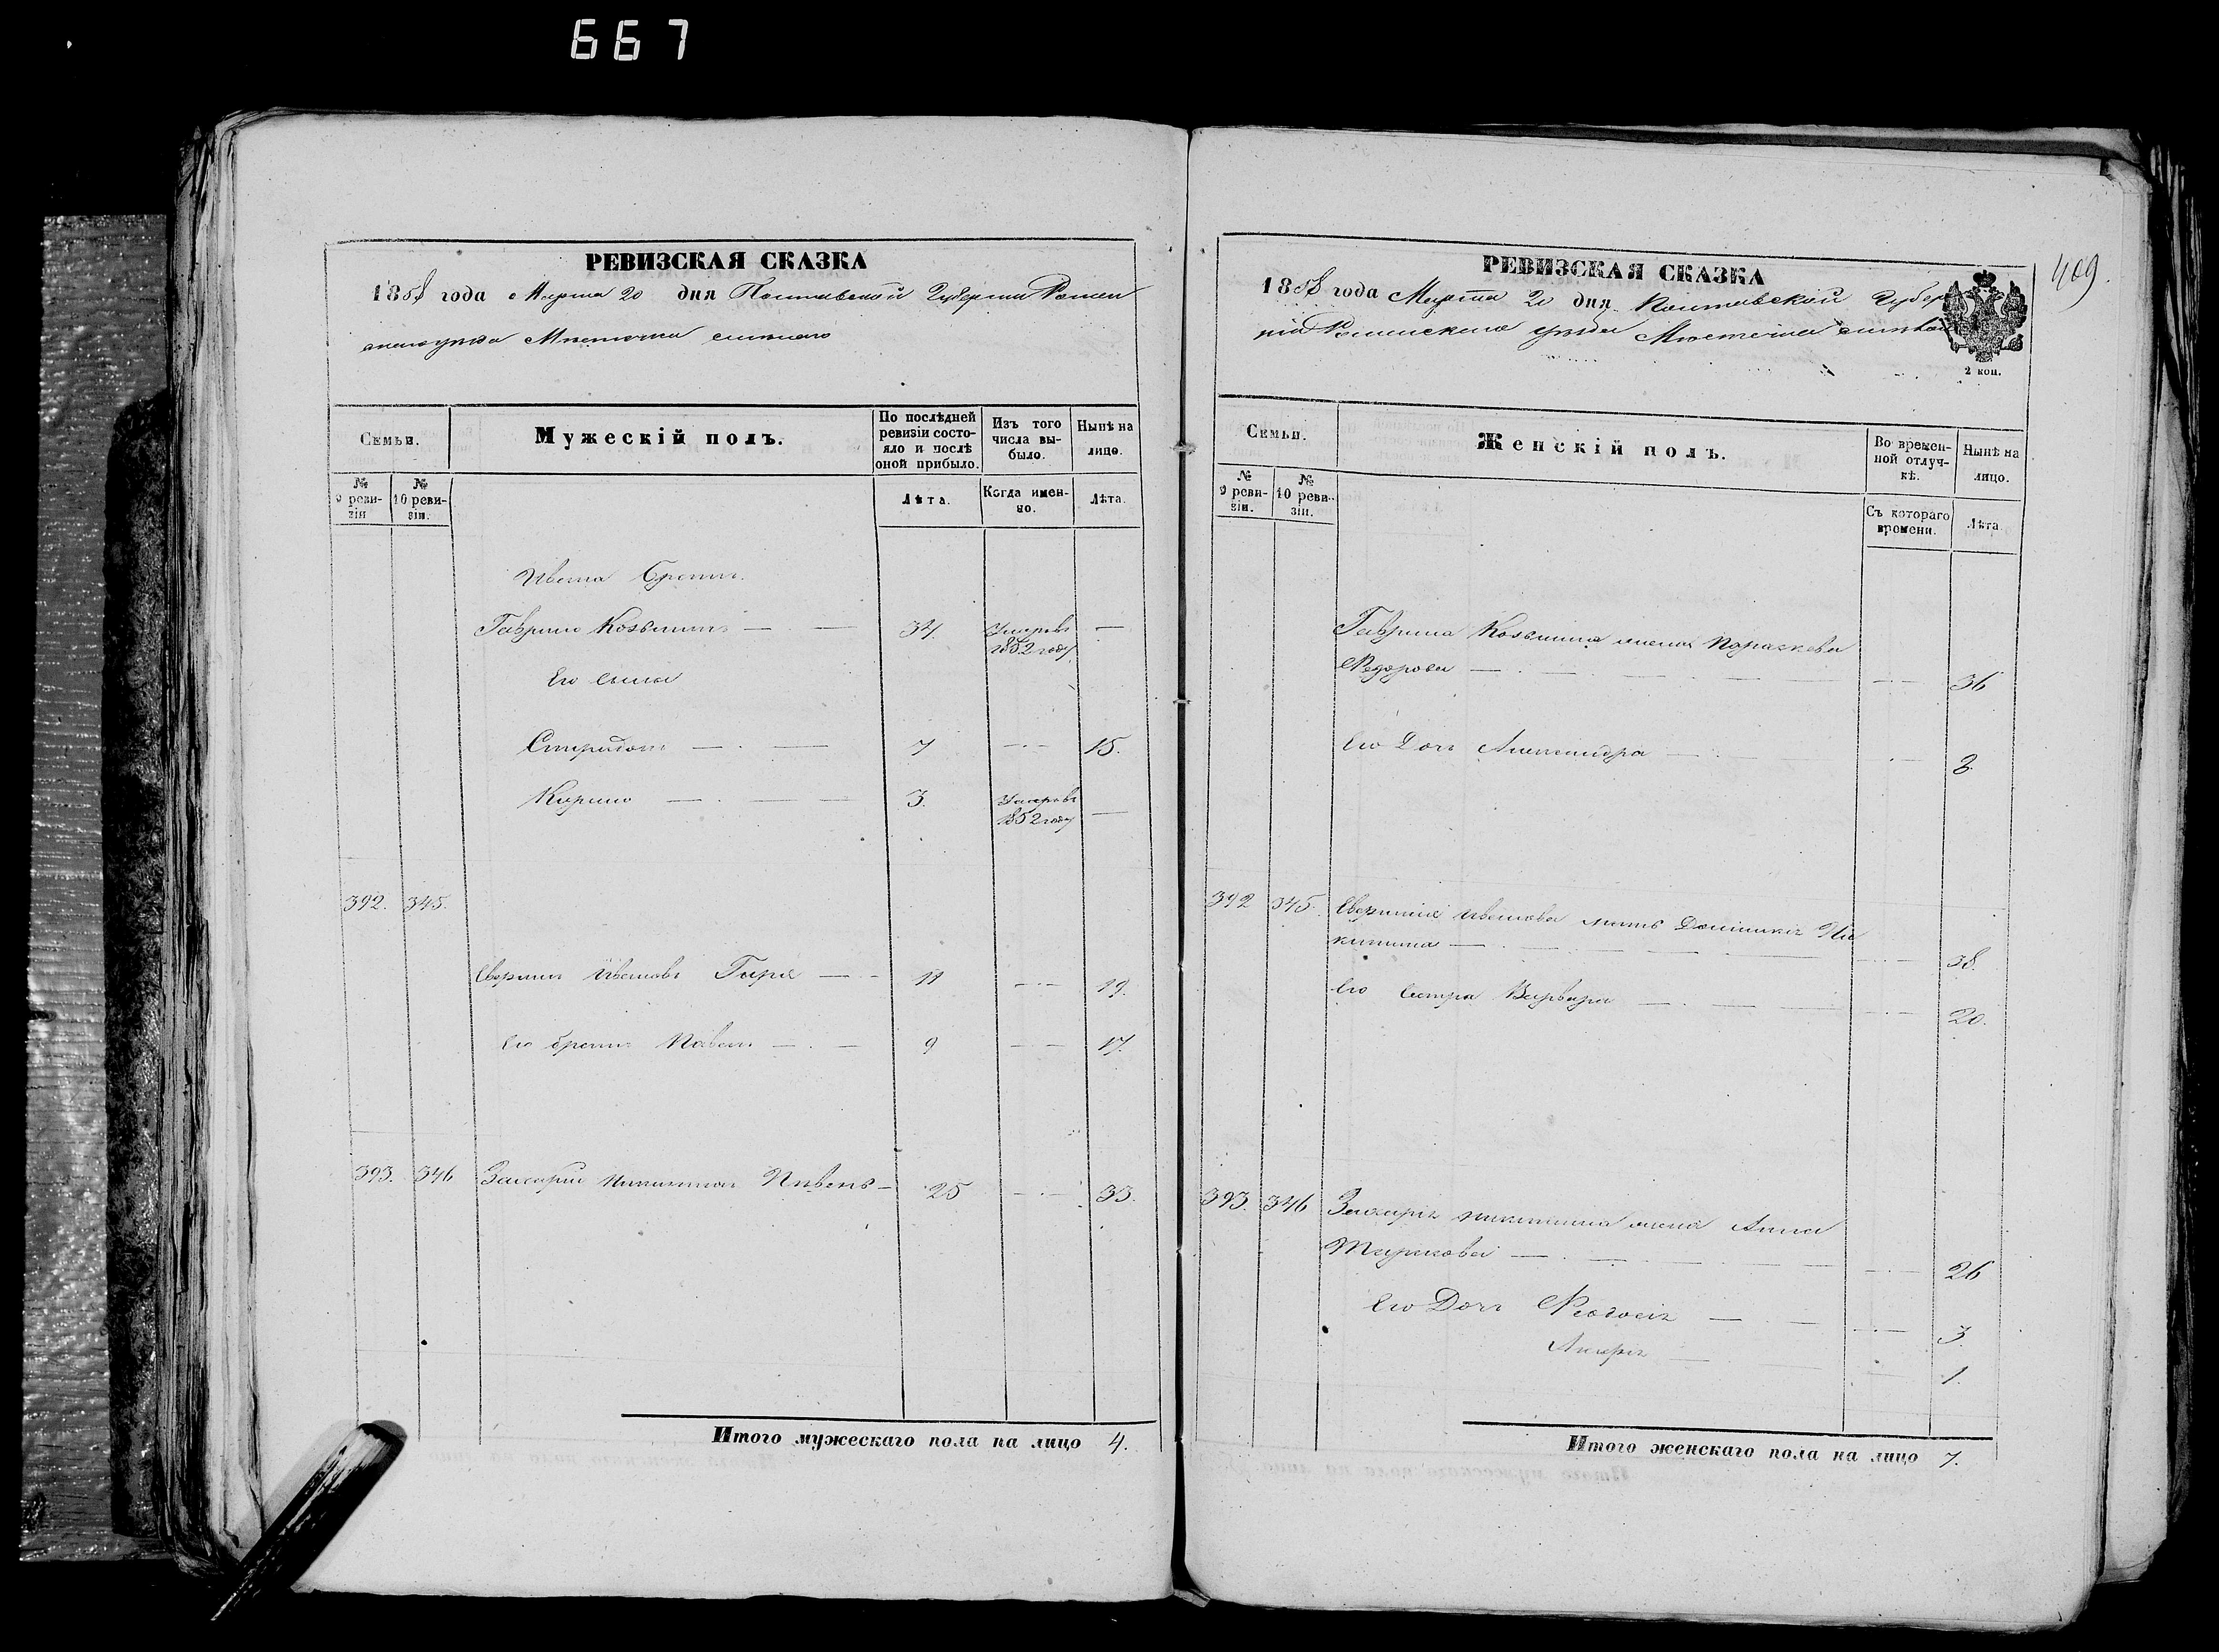 667
РЕВИЗСКАЯ СКАЗКА
1858 года Марта 20 дня Полтавской Губерніи Ромен
скаго уѣзда Мѣстечка
Семьи.
Мужескій полъ.
По послѣдней ревизіи состояло и послѣ оной прибыло.
Изъ того числа выбыло.
Нынѣ на лицо.
№ 9 ревизіи
№ 10 ревизіи.
Лѣта.
Когда именно.
Лѣта.
Ивана братъ.
Гаврило Козьминъ — — 34. Умеръ въ 1852 году —
Его сыны
Спиридонъ — . — 7 — . — 15.
Кирило — . — — 3. Умеръ въ 1852 году —
392. 345.
Аверкій Ивановъ Гиря — - 11 — . — 19.
Его братъ Павелъ — . — 9 — . — 17.
393. 346 Захарій Никитинъ Пивень — 25 — . — 33.
Итого мужескаго пола на лицо 4.
РЕВИЗСКАЯ СКАЗКА
409.
1858 года Марта 20 дня Полтавской Губер
ніи Роменскаго уѣзда Мѣстечка
2 коп.
Семьи.
Женскій полъ.
Во временной отлучкѣ.
Нынѣ на лицо.
№ 9 ревизіи.
№ 10 ревизіи.
Съ котораго времени.
Лѣта.
Гаврила Козьмина жена Параскева
Федорова — . — — . — 36
Его Дочь Александра — . — — . — 8.
392 345. Ивановa мать Домникія Ни
китина — . — — . — 38.
Его Сестра Варвара — . — — . — 20.
393. 346 Захарія Никитина жена Анна
Маркова — . — — . — 26
Его Дочь Феодосія — . — — . — 3.
1.
Итого женскаго пола на лицо 7.